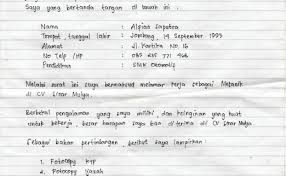 Saya yang bertanda tangan di bawah ini .
Nama : Alfian Saputra
Tempat, tanggal lahir : Jombang, 14 September 1993
Alamat : Jl. Kartika No. 16
No Telp / HP : 085 235 771 468
Pendidikan : SMK Otomotif
Melalui surat ini saya bermaksud melamar kerja sebagai Mekanik
di CV Sinar Mulya.
Berbekal pengalaman yang saya miliki, dan keinginan yang kuat
untuk bekerja, besar harapan saya dan diterima di CV Sinar Mulya.
Sebagai bahan pertimbangan berikut saya lampirkan :
1. Fotocopy KTP
2. Fotocopy Ijasah